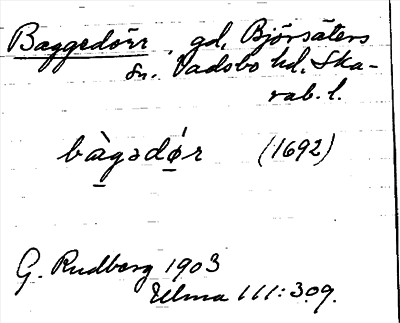 Baggedörr, gd, Bjärsäters
sn. Vadsbo hd, Ska-
rab. l.
bàgədǿr (1692)
G. Rudberg 1903
Ulma 111:309.